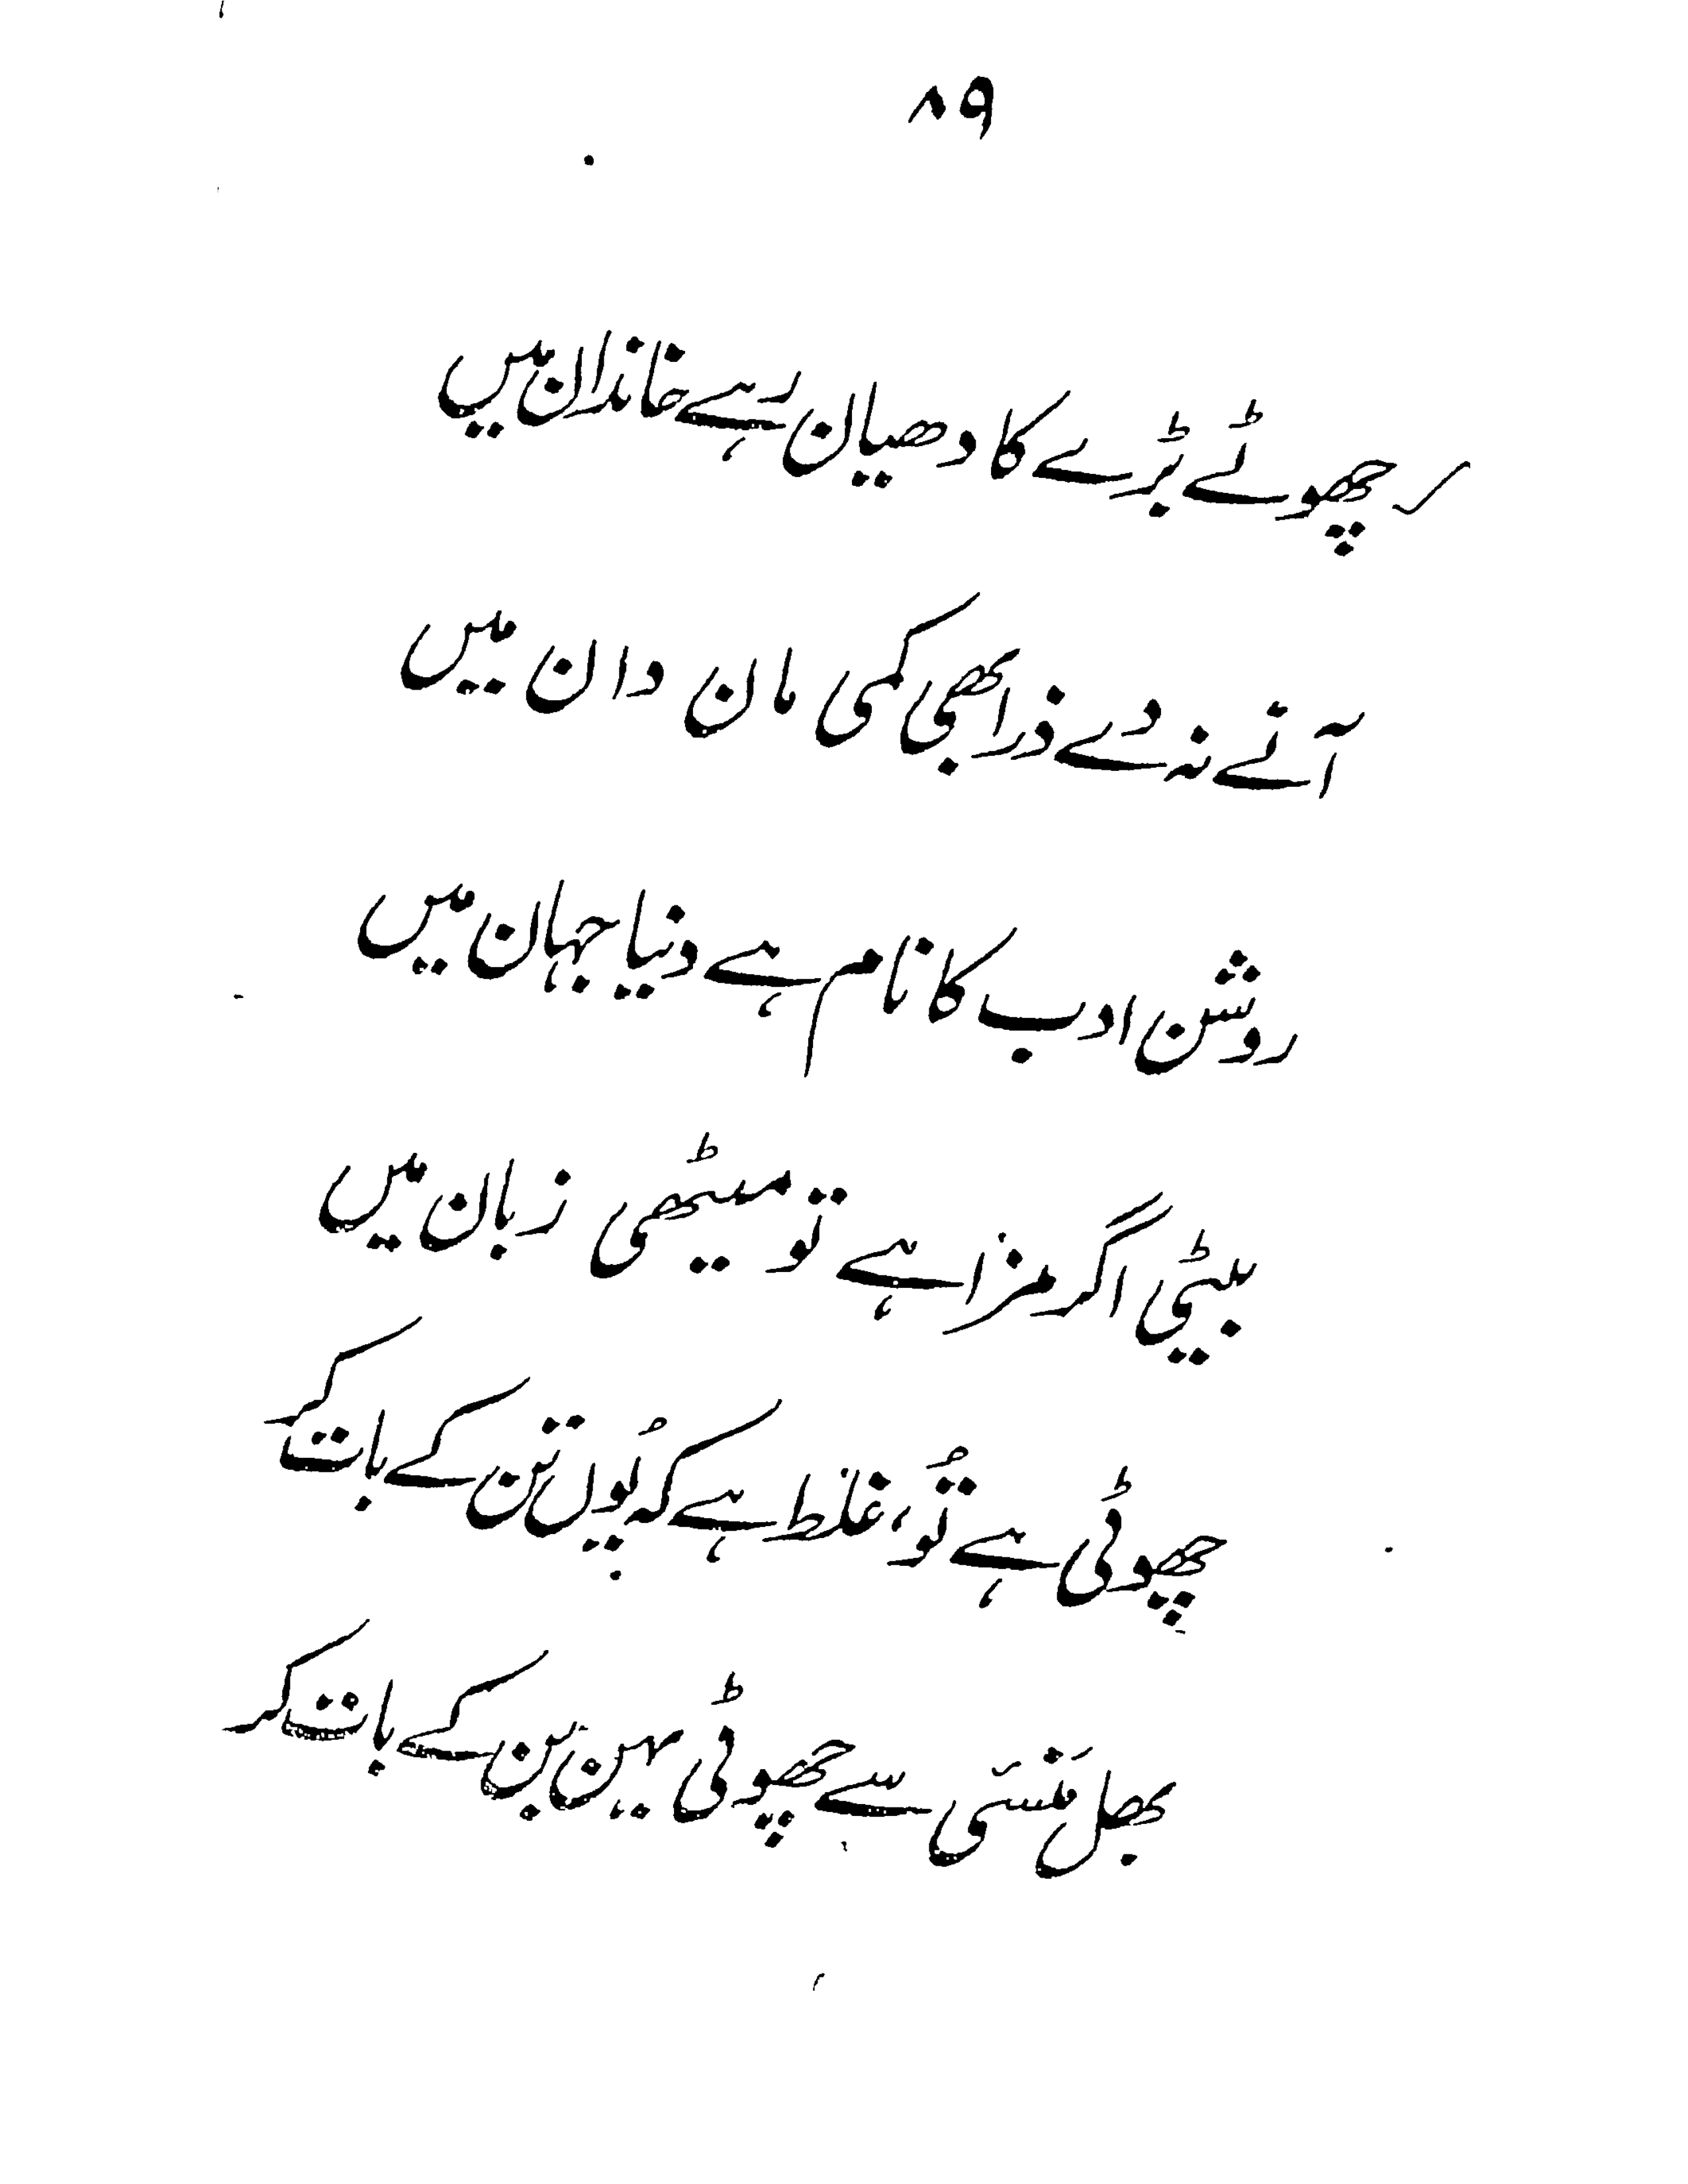 ۸۹
چھوٹے بڑے کا دھیان رہے خاندان میں
آنے نہ دے ذرا بھی کمی مان دان میں
روشن ادب کا نام ہے دنیا جہان میں
بیٹی اگر مزا ہے تو میٹھی زبان میں
چھوٹی ہے تُو، غلط ہے کہ یُوں تن کے بات کر
بھل مَنسَی سے چھوٹی بہن بن کے بات کر